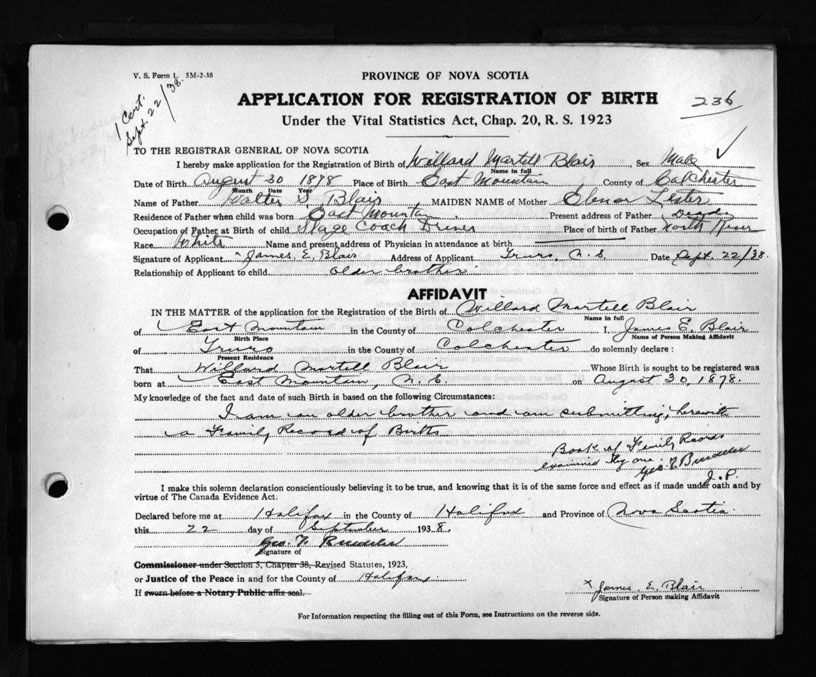 V. S. Form 1. 5M-2-38
PROVINCE OF NOVA SCOTIA
1 Cert.
Sept. 22/38.
APPLICATION FOR REGISTRATION OF BIRTH
236
Under the Vital Statistics Act, Chap. 20, R. S. 1923
TO THE REGISTRAR GENERAL OF NOVA SCOTIA
I hereby make application for the Registration of Birth of Willard Martell Blair Sex Male
Name in full
Date of Birth August 30 1878 Place of Birth East Mountain County of Colchester
Month Date Year
Name of Father Walter S. Blair MAIDEN NAME of Mother Lester
Residence of Father when child was born East Mountain Present address of Father
Occupation of Father at Birth of child Stage Coach Driver Place of birth of Father North River
Race White Name and present address of Physician in attendance at birth
Signature of Applicant x James E. Blair Address of Applicant Truro, N. S. Date Sept. 22/38.
Relationship of Applicant to child older brother
AFFIDAVIT
IN THE MATTER of the application for the Registration of the Birth of Willard Martell Blair
Name in full
of East Mountain in the County of Colchester I, James E. Blair
Birth Place Name of Person Making Affidavit
of Truro in the County of Colchester do solemnly declare :
Present Residence
That Willard Martell Blair Whose Birth is sought to be registered was
born at East Mountain, N. S. on August 30, 1878.
My knowledge of the fact and date of such Birth is based on the following Circumstances:
I am an older brother and am submitting, herewith
a Family Record of Births
Book of Family Record
examined by me. Geo.
J. P.
I make this solemn declaration conscientiously believing it to be true, and knowing that it is of the same force and effect as if made under oath and by
virtue of The Canada Evidence Act.
Declared before me at Halifax in the County of Halifax and Province of Nova Scotia
this 22 day of September 1938.
Geo.
Signature of
Commissioner under Section 5, Chapter 38, Revised Statutes, 1923,
or Justice of the Peace in and for the County of Halifax
If sworn before a Notary Public affix seal.
x James E. Blair
Signature of Person making Affidavit
For Information respecting the filling out of this Form, see Instructions on the reverse side.